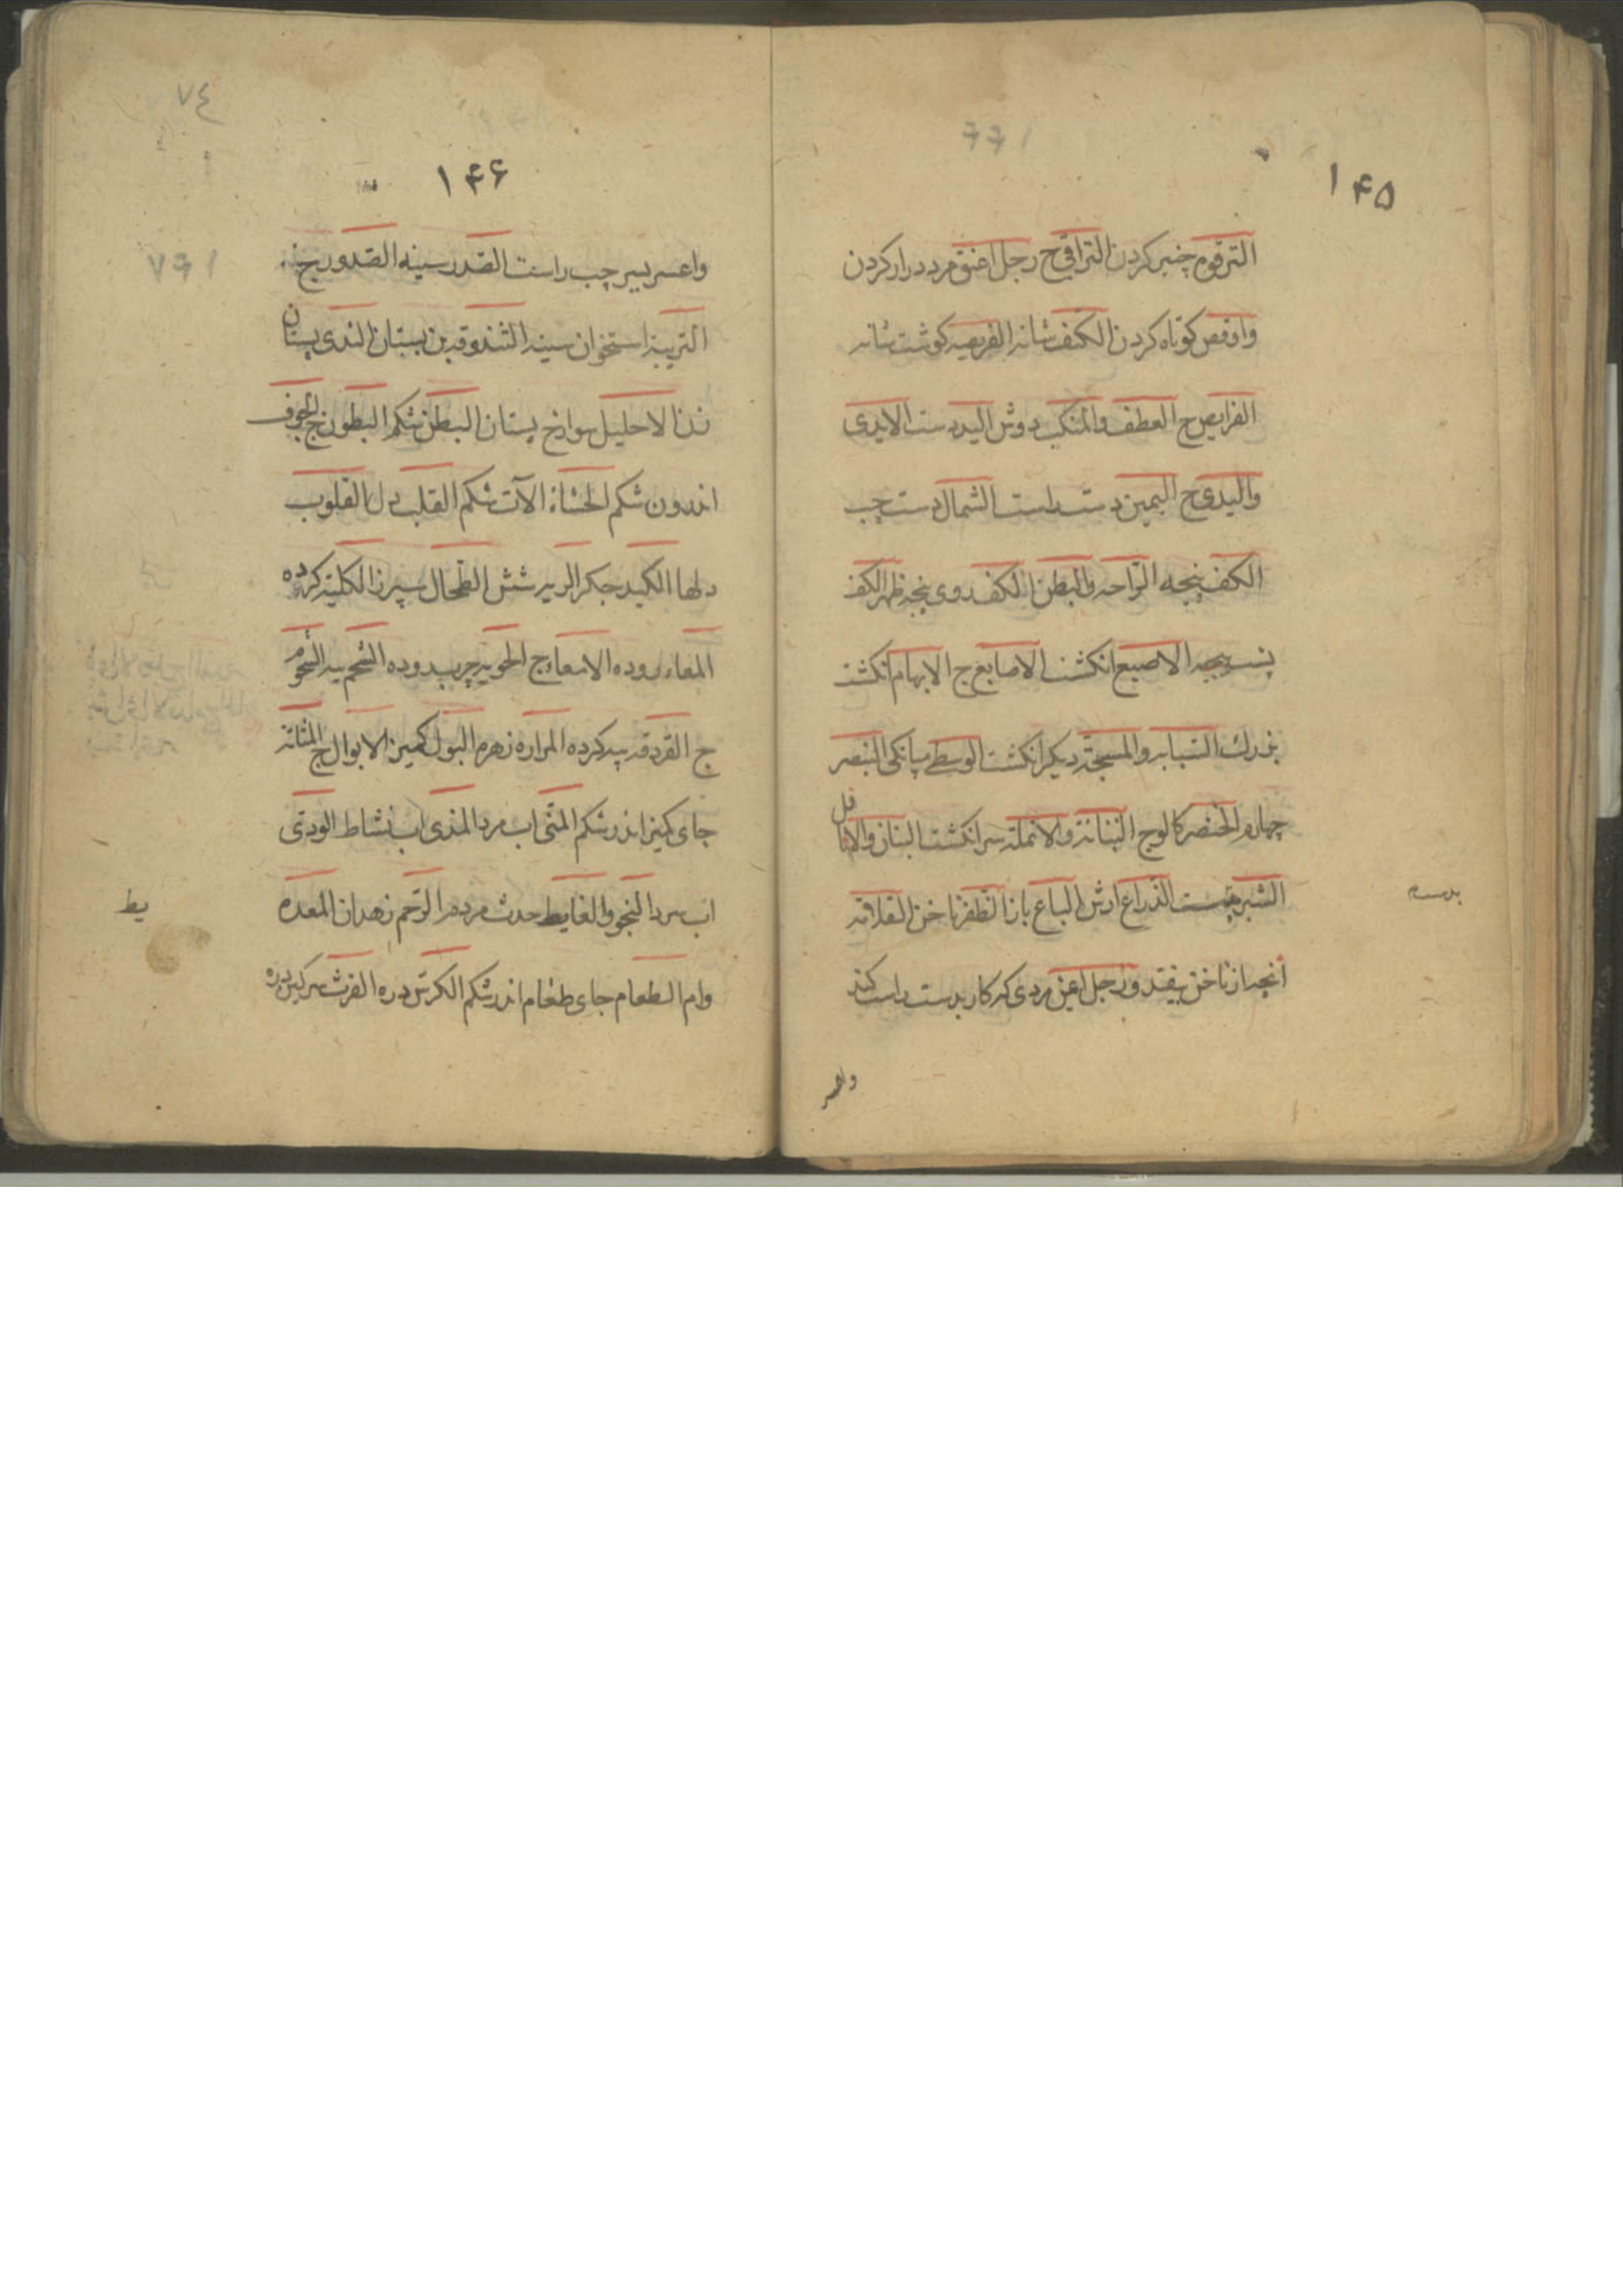 ۱۴۵
الترقوه چنبر کردن التراقی ج رجل اعنق مرد دراز کردن
واوقص کوتاه کردن الکتف شانه الفریصه کوشت شانه
الفرایص ج العطف والمنکب دوش الید دست الایدی
والیدی ج الیمین دست راست الشمال دست چپ
الکف پنجه الراحه والبطن الکف روی پنجه ظهر الکف
پشت پنجه الاصبع انکشت الاصابع ج الابهام انکشت
بزرك السبابه والمسبحة دیکر انکشت الوسطی میانکی البنصر
چهارم الخنصر کالوج البنانة والانملة سر انکشت البنان والانامل
الشبر بدست الذراع ارش الباع باز الظفر ناخن القلامه
آنچه از ناخن بیفتد ورجل اعین مردی که کار بدست راست کند
بدست
واعسر
۷٤
۱۴۶
واعسر یسر چپ راست الصدر سینه الصدور ج
التریبة استخوان سینه الثندوة بن پستان الثدی پستان
ندا الاحلیل سوراخ پستان البطن شکم البطون ج الجوف
اندرون شکم الحشاء الآت شکم القلب دل القلوب
دلها الکبد جکر الریه شش الطحال سپرز الکلیة کرده
المعاء روده الامعاء ج الحویه چرب روده الشحم پیه الشحوم
ج القردقه پیه کرده المراره زهره البول کمیز الابوال ج المثانه
جای کمیز اندر شکم المنی اب مرد المذی اب نشاط الودی
اب سرد النجو والغایط حدث مردم الرحم زهدان المعده
وام الطعام جای طعام اندر شکم الکرش دره الفرث سرکین دره
یط